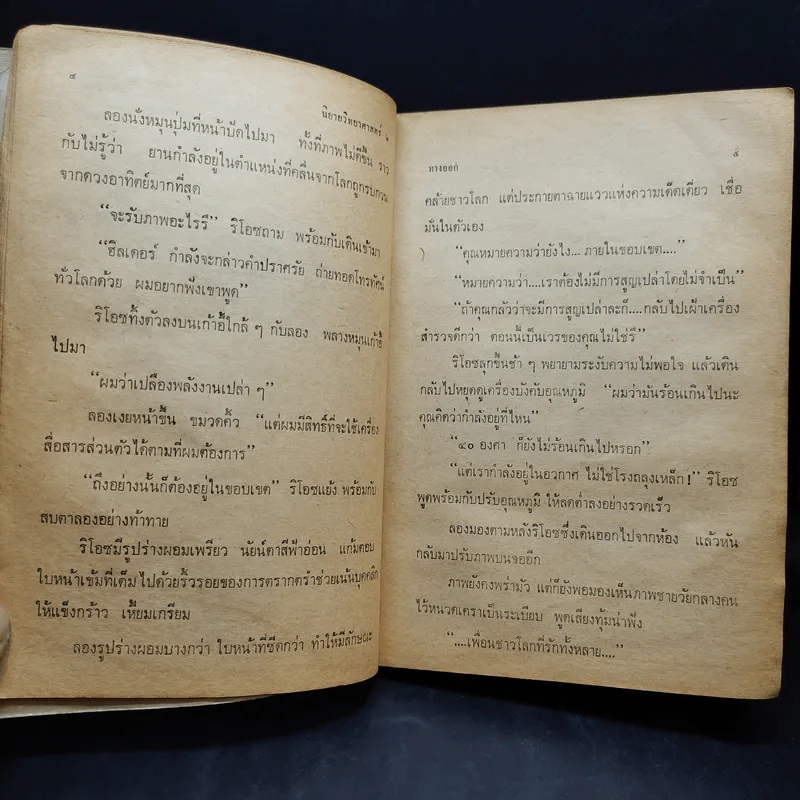 ๔
นิยายวิทยาศาสตร์ ๒
ลองนั่งหมุนปุ่มที่หน้าปัดไปมา ทั้งที่ภาพไม่ดีขึ้น ราว
กับไม่รู้ว่า ยานกำลังอยู่ในตำแหน่งที่คลื่นจากโลกถูกรบกวน
จากดวงอาทิตย์มากที่สุด
“จะรับภาพอะไรรึ” ริโอซถาม พร้อมกับเดินเข้ามา
“ฮิลเดอร์ กำลังจะกล่าวคำปราศรัย ถ่ายทอดโทรทัศน์
ทั่วโลกด้วย ผมอยากฟังเขาพูด”
ริโอซทิ้งตัวลงบนเก้าอี้ใกล้ ๆ กับลอง พลางหมุนเก้าอี้
ไปมา
“ผมว่าเปลืองพลังงานเปล่า ๆ”
ลองเงยหน้าขึ้น ขมวดคิ้ว “แต่ผมมีสิทธิ์ที่จะใช้เครื่อง
สื่อสารส่วนตัวได้ตามที่ผมต้องการ”
“ถึงอย่างนั้นก็ต้องอยู่ในขอบเขต” ริโอซแย้ง พร้อมกับ
สบตาลองอย่างท้าทาย
ริโอซมีรูปร่างผอมเพรียว นัยน์ตาสีฟ้าอ่อน แก้มตอบ
ใบหน้าเข้มที่เต็มไปด้วยริ้วรอยของการตรากตรำช่วยเน้นบุคคลิก
ให้แข็งกร้าว เหี้ยมเกรียม
ลองรูปร่างผอมบางกว่า ใบหน้าที่ซีดกว่า ทำให้มีลักษณะ
ทางออก
๕
คล้ายชาวโลก แต่ประกายตาฉายแววแห่งความเด็ดเดี่ยว เชื่อ
มั่นในตัวเอง
“คุณหมายความว่ายังไง... ภายในขอบเขต....”
“หมายความว่า....เราต้องไม่มีการสูญเปล่าโดยไม่จำเป็น”
“ถ้าคุณกลัวว่าจะมีการสูญเปล่าละก็....กลับไปเฝ้าเครื่อง
สำรวจดีกว่า ตอนนี้เป็นเวรของคุณไม่ใช่รึ”
ริโอซลุกขึ้นช้า ๆ พยายามระงับความไม่พอใจ แล้วเดิน
กลับไปหยุดดูเครื่องบังคับอุณหภูมิ “ผมว่ามันร้อนเกินไปนะ
คุณคิดว่ากำลังอยู่ที่ไหน”
“๔๐ องศา ก็ยังไม่ร้อนเกินไปหรอก”
“แต่เรากำลังอยู่ในอวกาศ ไม่ใช่โรงถลุงเหล็ก!” ริโอซ
พูดพร้อมกับปรับอุณหภูมิ ให้ลดต่ำลงอย่างรวดเร็ว
ลองมองตามหลังริโอซซึ่งเดินออกไปจากห้อง แล้วหัน
กลับมาปรับภาพบนจออีก
ภาพยังคงพร่ามัว แต่ก็ยังพอมองเห็นภาพชายวัยกลางคน
ไว้หนวดเคราเป็นระเบียบ พูดเสียงทุ้มน่าฟัง
“....เพื่อนชาวโลกที่รักทั้งหลาย....”